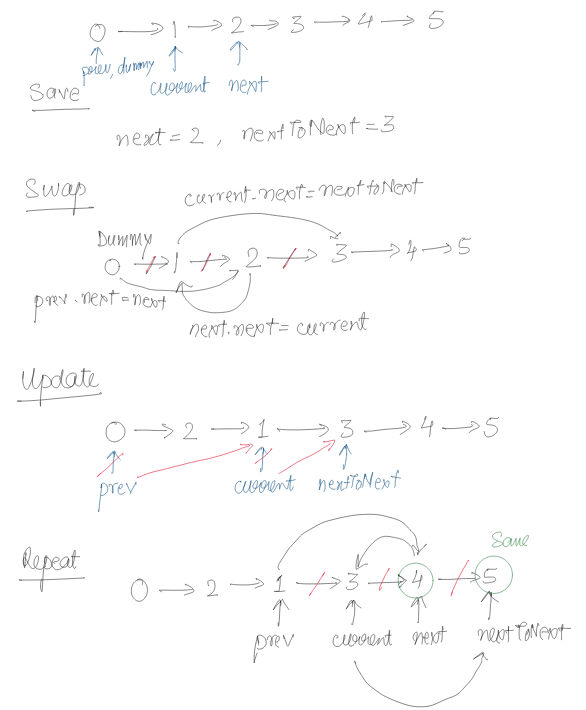 0 → 1 → 2 → 3 → 4 → 5
prev, dummy
current next
Save
next = 2 , nextToNext = 3
Swap
current.next = nexttoNext
Dummy
0 → 1 → 2 → 3 → 4 → 5
prev.next = next
next.next = current
Update
0 → 2 → 1 → 3 → 4 → 5
prev current nextToNext
Save
Repeat
0 → 2 → 1 → 3 → 4 → 5
prev current next nextToNext